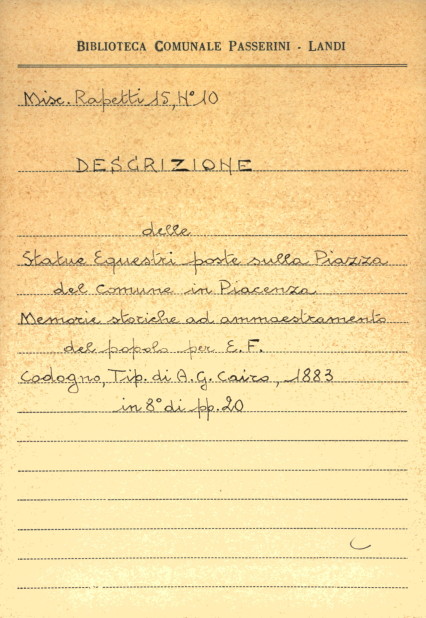 BIBLIOTECA COMUNALE PASSERINI - LANDI
Misc. Rapetti 15, N° 10
DESCRIZIONE
delle
Statue Equestri poste sulla Piazza
del Comune in Piacenza
Memorie storiche ad ammaestramento
del popolo per E. F.
Codogno, Tip. di A. G. Cairo, 1883
in 8° di pp. 20